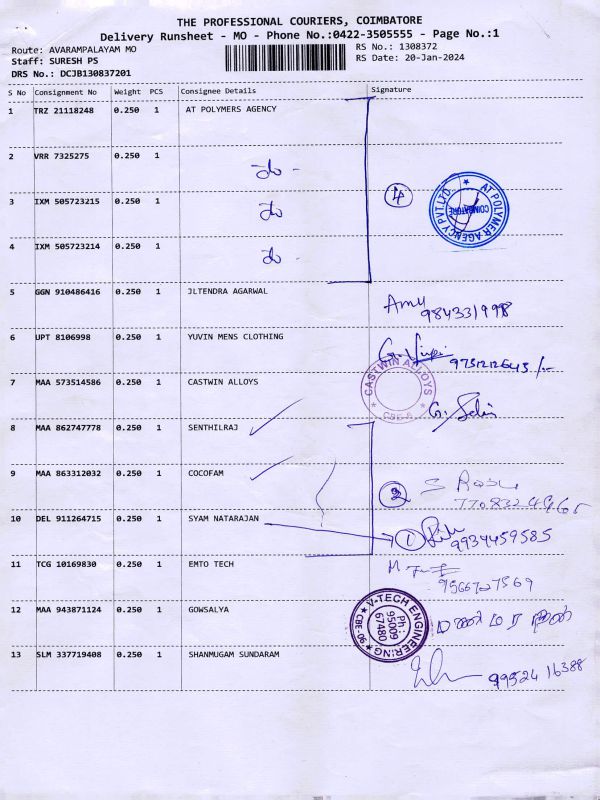 THE PROFESSIONAL COURIERS, COIMBATORE
Delivery Runsheet - MO - Phone No.:0422-3505555 - Page No.:1
Route: AVARAMPALAYAM MO
RS No.: 1308372
Staff: SURESH PS
RS Date: 20-Jan-2024
DRS No.: DCJB130837201
S No Consignment No Weight PCS Consignee Details Signature
1 TRZ 21118248 0.250 1 AT POLYMERS AGENCY
2 VRR 7325275 0.250 1
3 IXM 505723215 0.250 1
4
AT POLYMER AGENCY PVT.LTD.
COIMBATORE
4 IXM 505723214 0.250 1
5 GGN 910486416 0.250 1 JLTENDRA AGARWAL
Amy
9843331998
6 UPT 8106998 0.250 1 YUVIN MENS CLOTHING
7 MAA 573514586 0.250 1 CASTWIN ALLOYS
CASTWIN ALLOYS
CBE-6
8 MAA 862747778 0.250 1 SENTHILRAJ
9 MAA 863312032 0.250 1 COCOFAM
2
10 DEL 911264715 0.250 1 SYAM NATARAJAN
1
9934459585
11 TCG 10169830 0.250 1 EMTO TECH
9566727569
12 MAA 943871124 0.250 1 GOWSALYA
V-TECH ENGINEERING
Ph :
95009
67480
CBE-90
13 SLM 337719408 0.250 1 SHANMUGAM SUNDARAM
9952416388